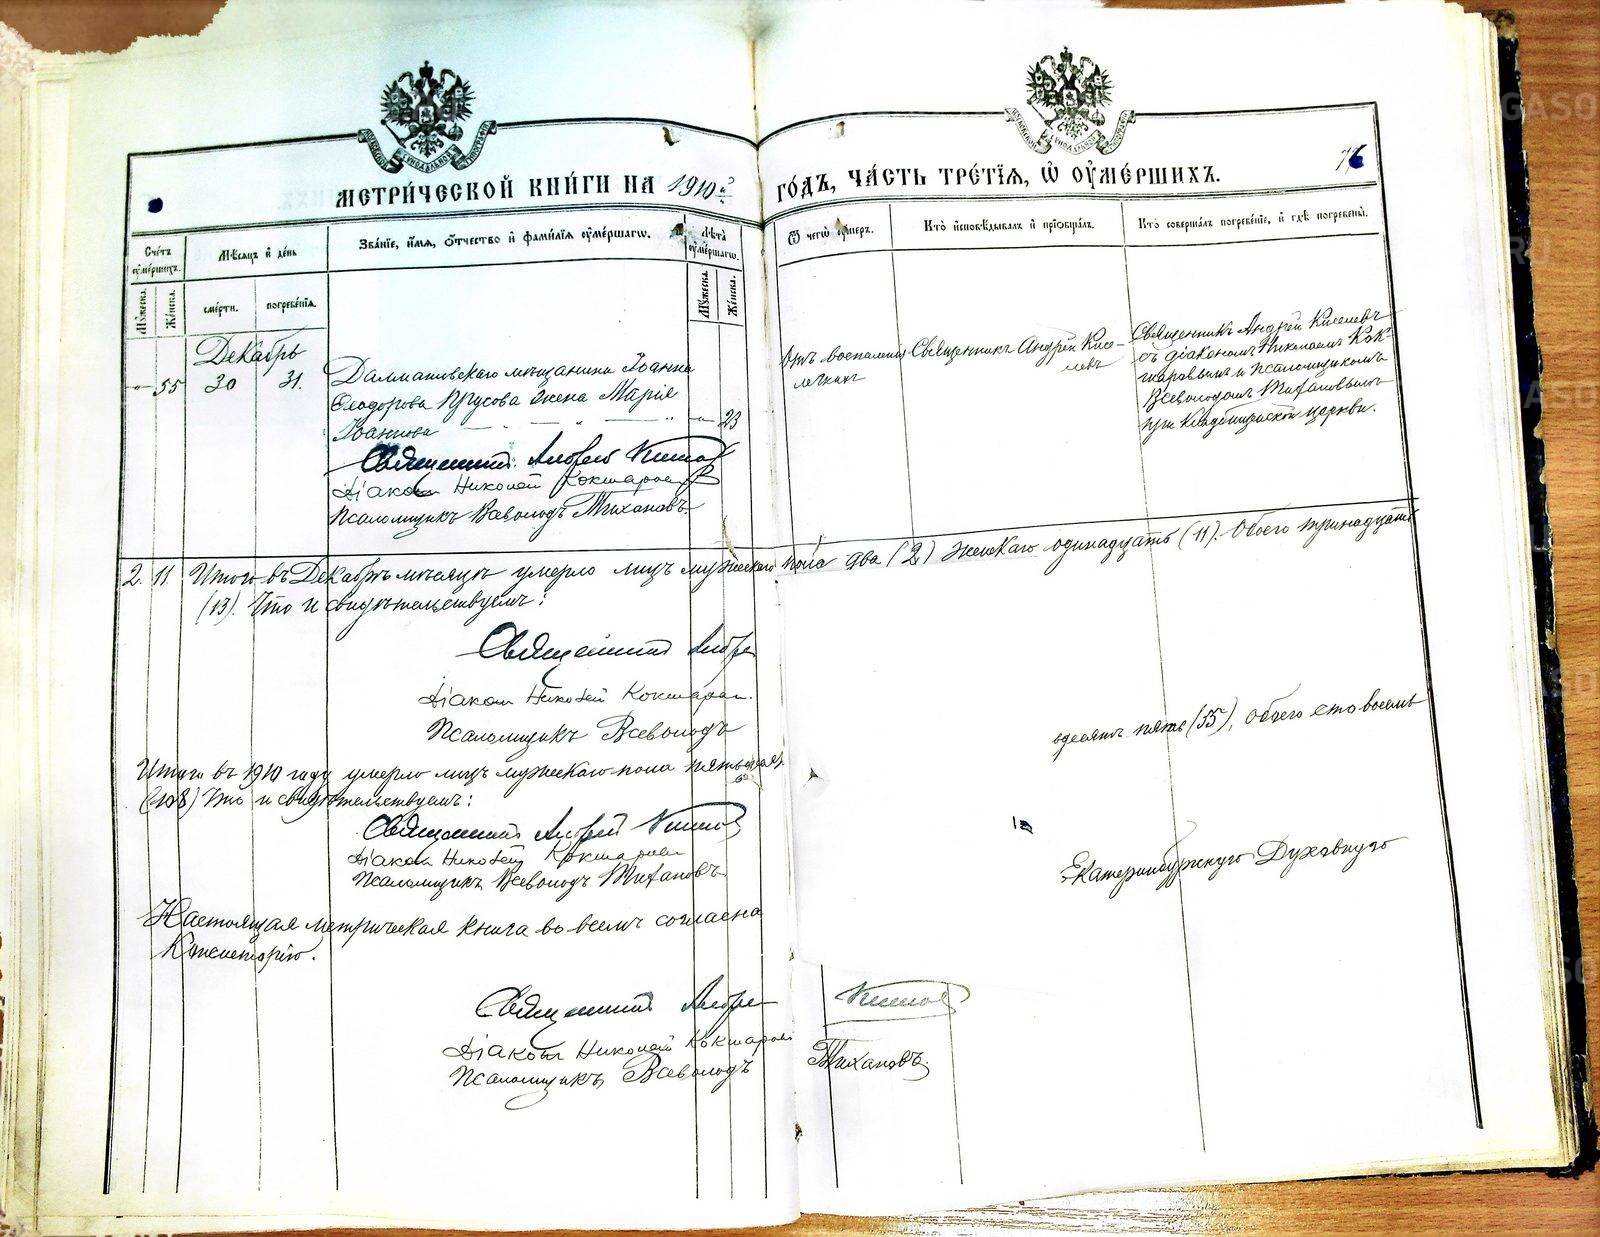 МЕТРИЧЕСКОЙ КНИГИ НА 1910 й
ГОДЪ, ЧАСТЬ ТРЕТІЯ, Ѿ ОУМЕРШИХЪ.
76
Счетъ оумершихъ.
Мѣсяцъ и день
Званіе, имя, отчество и фамилія оумершаго.
Лѣта оумершаго.
Ѿ чего оумеръ.
Кто исповѣдывалъ и пріобщалъ.
Кто совершалъ погребеніе, и гдѣ погребены.
Мужеска.
Женска.
смерти.
погребенія.
Мужеска.
Женска.
Декабрь
55 30 31.
Далматовскаго мѣщанина Іоанна
Ѳеодорова жена Марія
Іоаннова 23
Отъ воспаленія
легкихъ
Священникъ Андрей Кисе-
левъ
Священникъ Андрей Киселевъ
съ діакономъ Николаемъ Кок-
шаровымъ и псаломщикомъ
Всеволодомъ Тихановымъ
при Кладбищенской церкви.
Священникъ Андрей Киселев
Діаконъ Николай Кокшаров
Псаломщикъ Всеволодъ Тихановъ
2. 11. Итого въ Декабрѣ мѣсяцѣ умерло лицъ мужескаго пола два (2) женскаго одинадцать (11). Обоего тринадцать
(13). Что и свидѣтельствуемъ:
Священникъ Андре
Діаконъ Николай Кокшаров
Псаломщикъ Всеволодъ
Итого въ 1910 году умерло лицъ мужескаго пола
десятъ пять (55), обоего сто восемь
(108) Что и свидѣтельствуемъ:
Священникъ Андрей Киселев
Діаконъ Николай Кокшаров
Псаломщикъ Всеволодъ Тихановъ
Настоящая метрическая книга во всемъ согласна
Екатеринбургскую Духовную
Консисторію.
Священникъ Андре Киселев
Діаконъ Николай Кокшаров
Псаломщикъ Всеволодъ Тихановъ